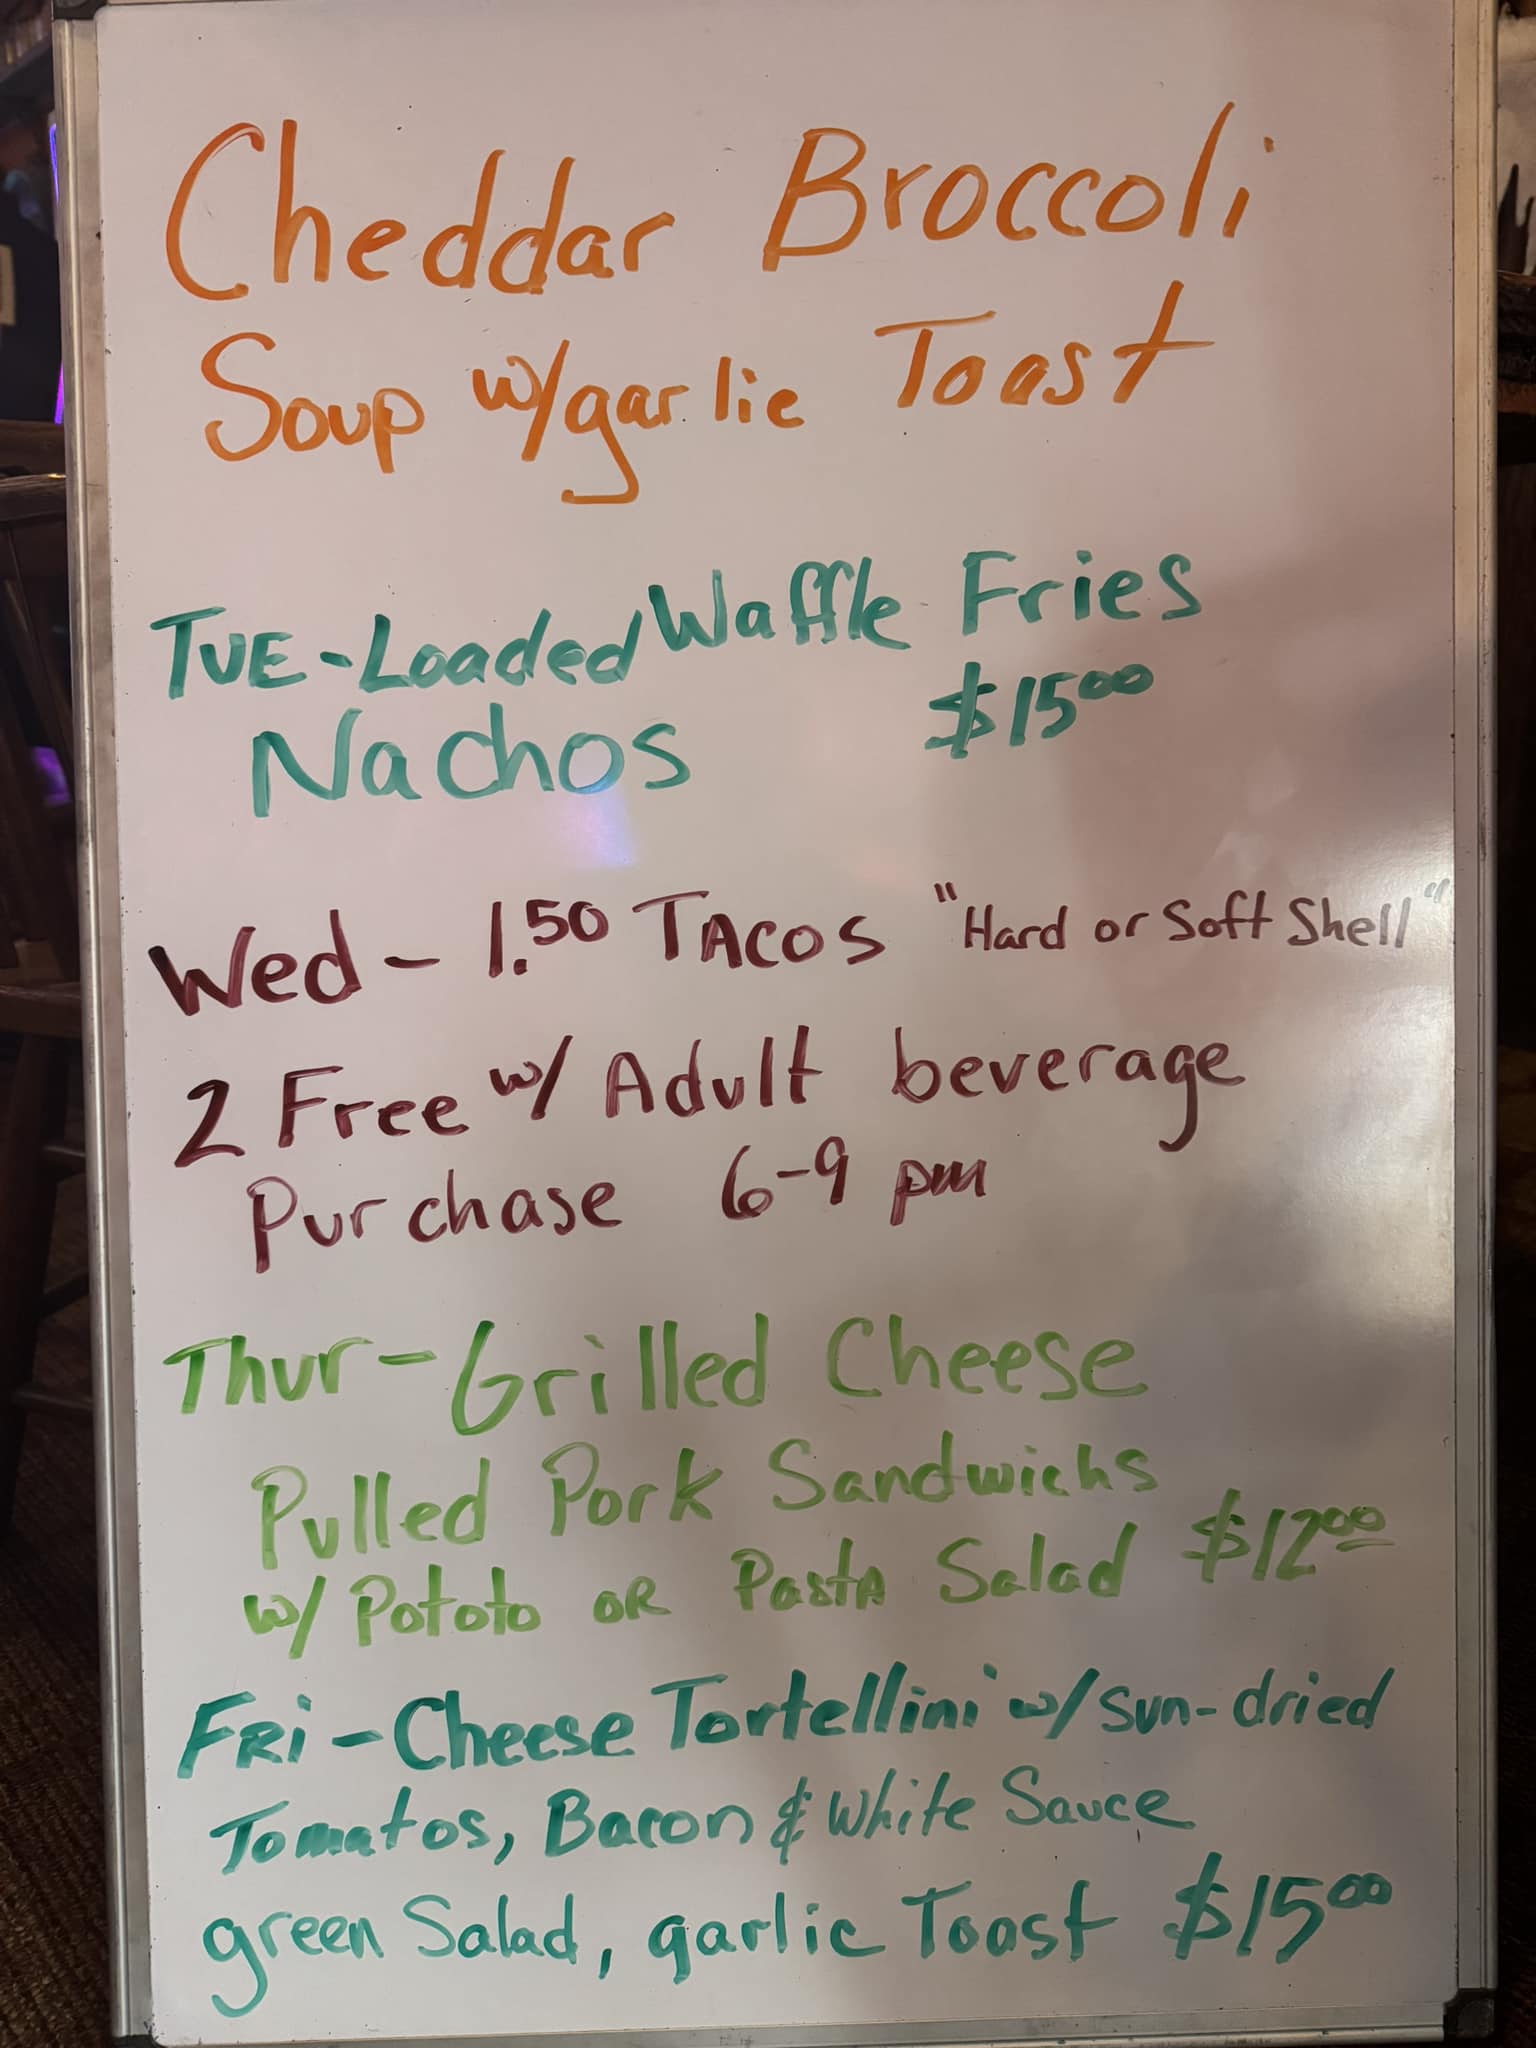 Cheddar Broccoli
Soup w/garlic Toast
TUE-Loaded Waffle Fries
Nachos $15.00
Wed - 1.50 TACOS "Hard or Soft Shell"
2 Free w/ Adult beverage
Purchase 6-9 pm
Thur - Grilled Cheese
Pulled Pork Sandwichs
w/ Pototo OR PastA Salad $12.00
FRi - Cheese Tortellini w/ Sun-dried
Tomatos, Bacon & White Sauce
green Salad, garlic Toast $15.00